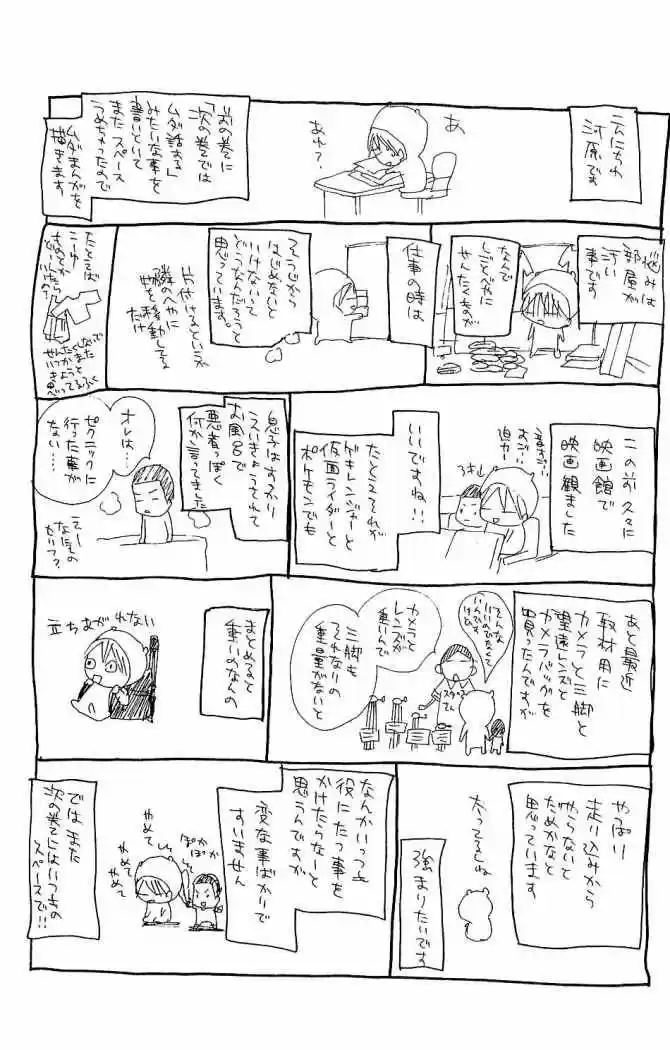 こんにちわ
河原です
あ
あれ?
前の巻に
「次の巻では
ムダ話する」
みたいな事を
書いていて
またスペース
うめちゃったので
ムダまんがを
描きます
悩みは
部屋が
汚い
事です
なんで
しごとべやに
せんたくものが
仕事の時は
そうじから
はじめないと
いけないって
どうなんだろうと
思っています。
片付けるというか
隣のへやに
物を移動してる
だけ
たとえば
こーゆー
せんたくしないで
またいつか
この前久々に
映画館で
映画観ました
音が…
おおお…
迫力…
いいですね!!
たとえそれが
ゲキレンジャーと
仮面ライダーと
ポケモンでも
息子はすっかり
えいきょうされて
お風呂で
悪者っぽく
何か言ってました
オレは…
ピクニックに
行った事が
ない…
えー
なにその
セリフ?
あと最近
取材用に
カメラと三脚と
望遠レンズと
カメラバッグを
買ったんですが
そんな
いいのじゃなくて
いいんです
けど
スタッフ
さん
カメラと
レンズが
重いんで
三脚も
それなりの
重量がないと
まとめると
重いのなんの
立ちあがれない
やっぱり
走り込みから
やらないと
だめかなと
思っています
太ってるしね
強まりたいです
なんかいつも
役にたつ事を
かけたらなーと
思うんですが
変な事ばかりで
すいません
ぽかぽか
やめて
やめて
やめて
ではまた
次の巻にはいつもの
スペースで!!